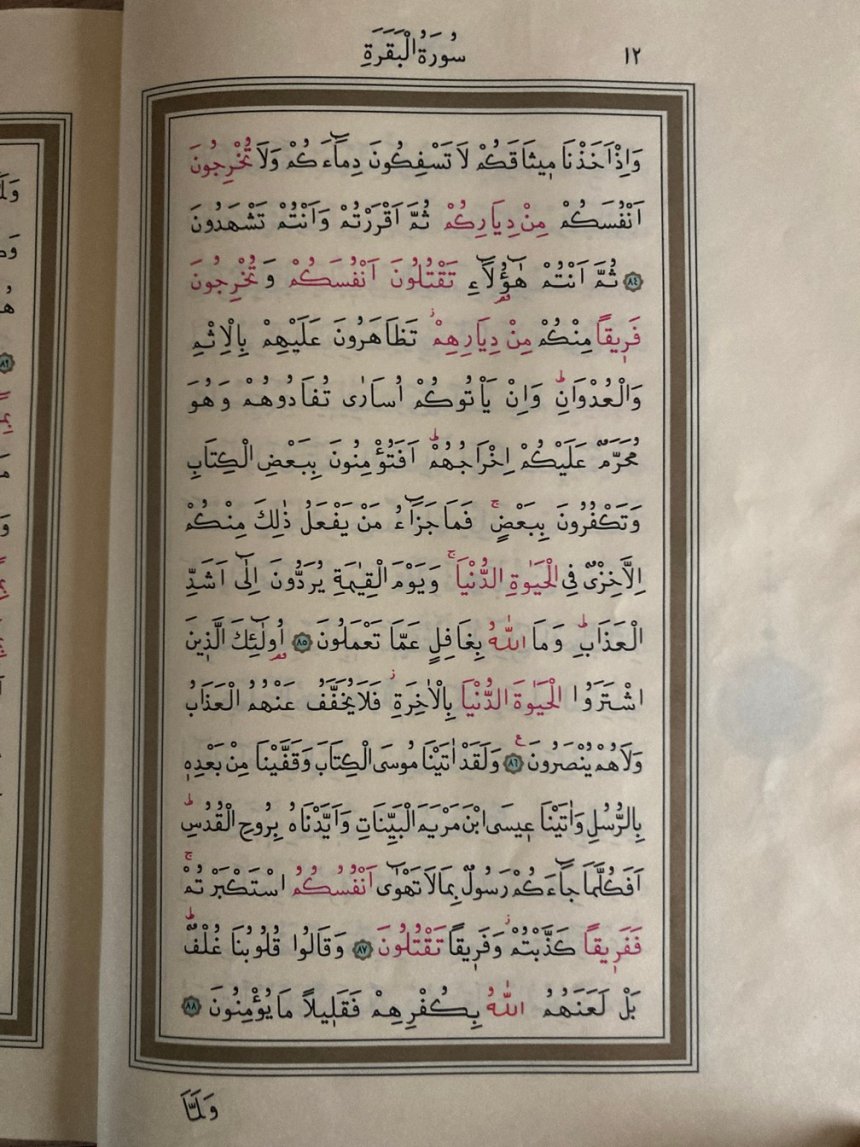 ١٢
سُورَةُ الْبَقَرَةِ
وَاِذْ اَخَذْنَا مٖيثَاقَكُمْ لَا تَسْفِكُونَ دِمَٓاءَكُمْ وَلَا تُخْرِجُونَ
اَنْفُسَكُمْ مِنْ دِيَارِكُمْ ثُمَّ اَقْرَرْتُمْ وَاَنْتُمْ تَشْهَدُونَ
﴿٨٤﴾ ثُمَّ اَنْتُمْ هٰٓؤُ۬لَٓاءِ تَقْتُلُونَ اَنْفُسَكُمْ وَتُخْرِجُونَ
فَرٖيقاً مِنْكُمْ مِنْ دِيَارِهِمْؗ تَظَاهَرُونَ عَلَيْهِمْ بِالْاِثْمِ
وَالْعُدْوَانِؕ وَاِنْ يَأْتُوكُمْ اُسَارٰى تُفَادُوهُمْ وَهُوَ
مُحَرَّمٌ عَلَيْكُمْ اِخْرَاجُهُمْؕ اَفَتُؤْمِنُونَ بِبَعْضِ الْكِتَابِ
وَتَكْفُرُونَ بِبَعْضٍۚ فَمَا جَزَٓاءُ مَنْ يَفْعَلُ ذٰلِكَ مِنْكُمْ
اِلَّا خِزْيٌ فِي الْحَيٰوةِ الدُّنْيَاۚ وَيَوْمَ الْقِيٰمَةِ يُرَدُّونَ اِلٰٓى اَشَدِّ
الْعَذَابِؕ وَمَا اللّٰهُ بِغَافِلٍ عَمَّا تَعْمَلُونَ ﴿٨٥﴾ اُو۬لٰٓئِكَ الَّذٖينَ
اشْتَرَوُا الْحَيٰوةَ الدُّنْيَا بِالْاٰخِرَةِؗ فَلَا يُخَفَّفُ عَنْهُمُ الْعَذَابُ
وَلَا هُمْ يُنْصَرُونَࣖ ﴿٨٦﴾ وَلَقَدْ اٰتَيْنَا مُوسَى الْكِتَابَ وَقَفَّيْنَا مِنْ بَعْدِهٖ
بِالرُّسُلِ وَاٰتَيْنَا عٖيسَى ابْنَ مَرْيَمَ الْبَيِّنَاتِ وَاَيَّدْنَاهُ بِرُوحِ الْقُدُسِؕ
اَفَكُلَّمَا جَٓاءَكُمْ رَسُولٌ بِمَا لَا تَهْوٰٓى اَنْفُسُكُمُ اسْتَكْبَرْتُمْۚ
فَفَرٖيقاً كَذَّبْتُمْؗ وَفَرٖيقاً تَقْتُلُونَ ﴿٨٧﴾ وَقَالُوا قُلُوبُنَا غُلْفٌؕ
بَلْ لَعَنَهُمُ اللّٰهُ بِكُفْرِهِمْ فَقَلٖيلاً مَا يُؤْمِنُونَ ﴿٨٨﴾
وَلَمَّا